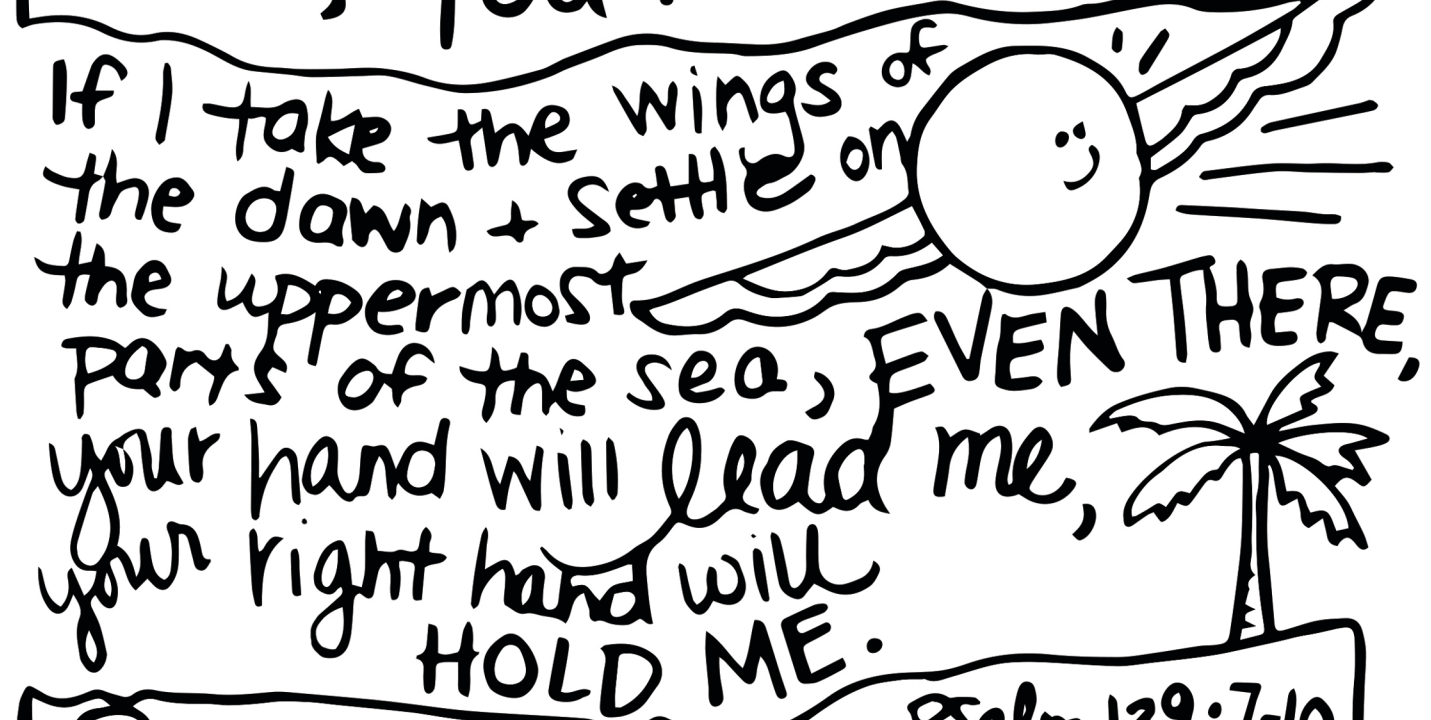 If I take the wings of
the dawn + settle on
the uppermost
parts of the sea, EVEN THERE,
your hand will lead me,
your right hand will
HOLD ME.
Psalm 139:7-10